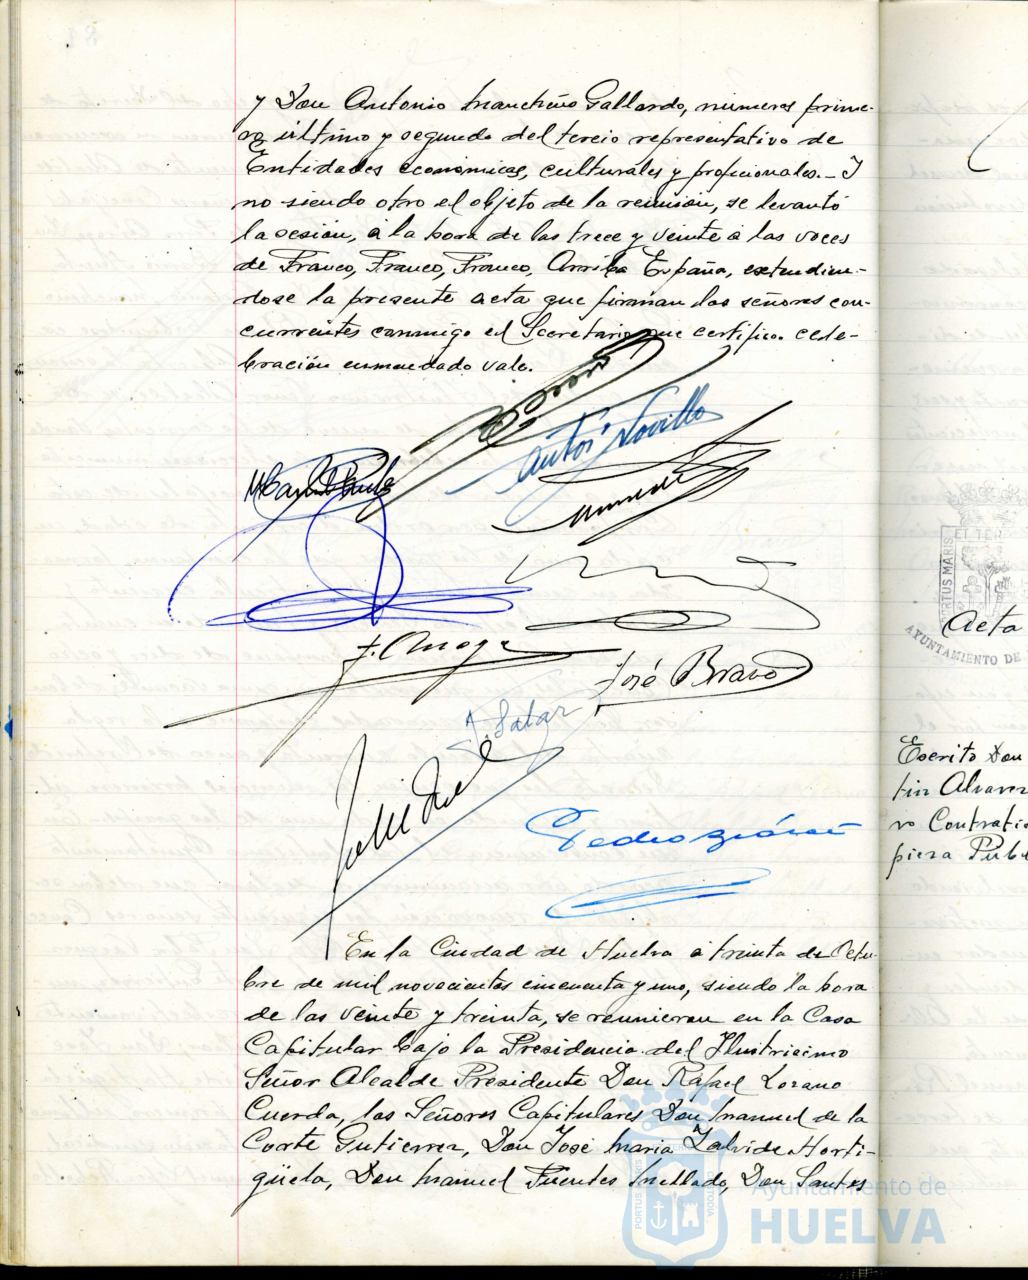 y Don Antonio Mancheño Gallardo, numeros prime-
ro, último y segundo del tercio representativo de
Entidades economicas, culturáles y proficionales.- Y
no siendo otro el objeto de la reunión, se levantó
la sesión, á la hora de las trece y veinte á las voces
de Franco, Franco, Franco, Arriba España, extendien-
dose la presente acta que firman los señores con-
currentes conmigo el Secretario que certifico. cele-
bración enmendado vale.
Antº Novillo
José Bravo
J. Salar
En la Ciudad de Huelva á treinta de Octu-
bre de mil novecientos cincuenta y uno, siendo la hora
de las veinte y treinta, se reunieron en la Casa
Capitular bajo la Presidencia del Ilustrisimo
Señor Alcalde Presidente Don Rafael Lozano
Cuerda, los Señores Capitulares Don Manuel de la
Corte Gutierrez, Don José Maria Zalvide Horti-
güela, Don Manuel Fuentes Mellado, Don Santos
PORTUS MARIS
ET TER
AYUNTAMIENTO DE
Acta
Escrito Don
tin Alvarez
vo Contrati
pieza Públ
PORTUS MARIS
CUSTODIA
Ayuntamiento de
HUELVA